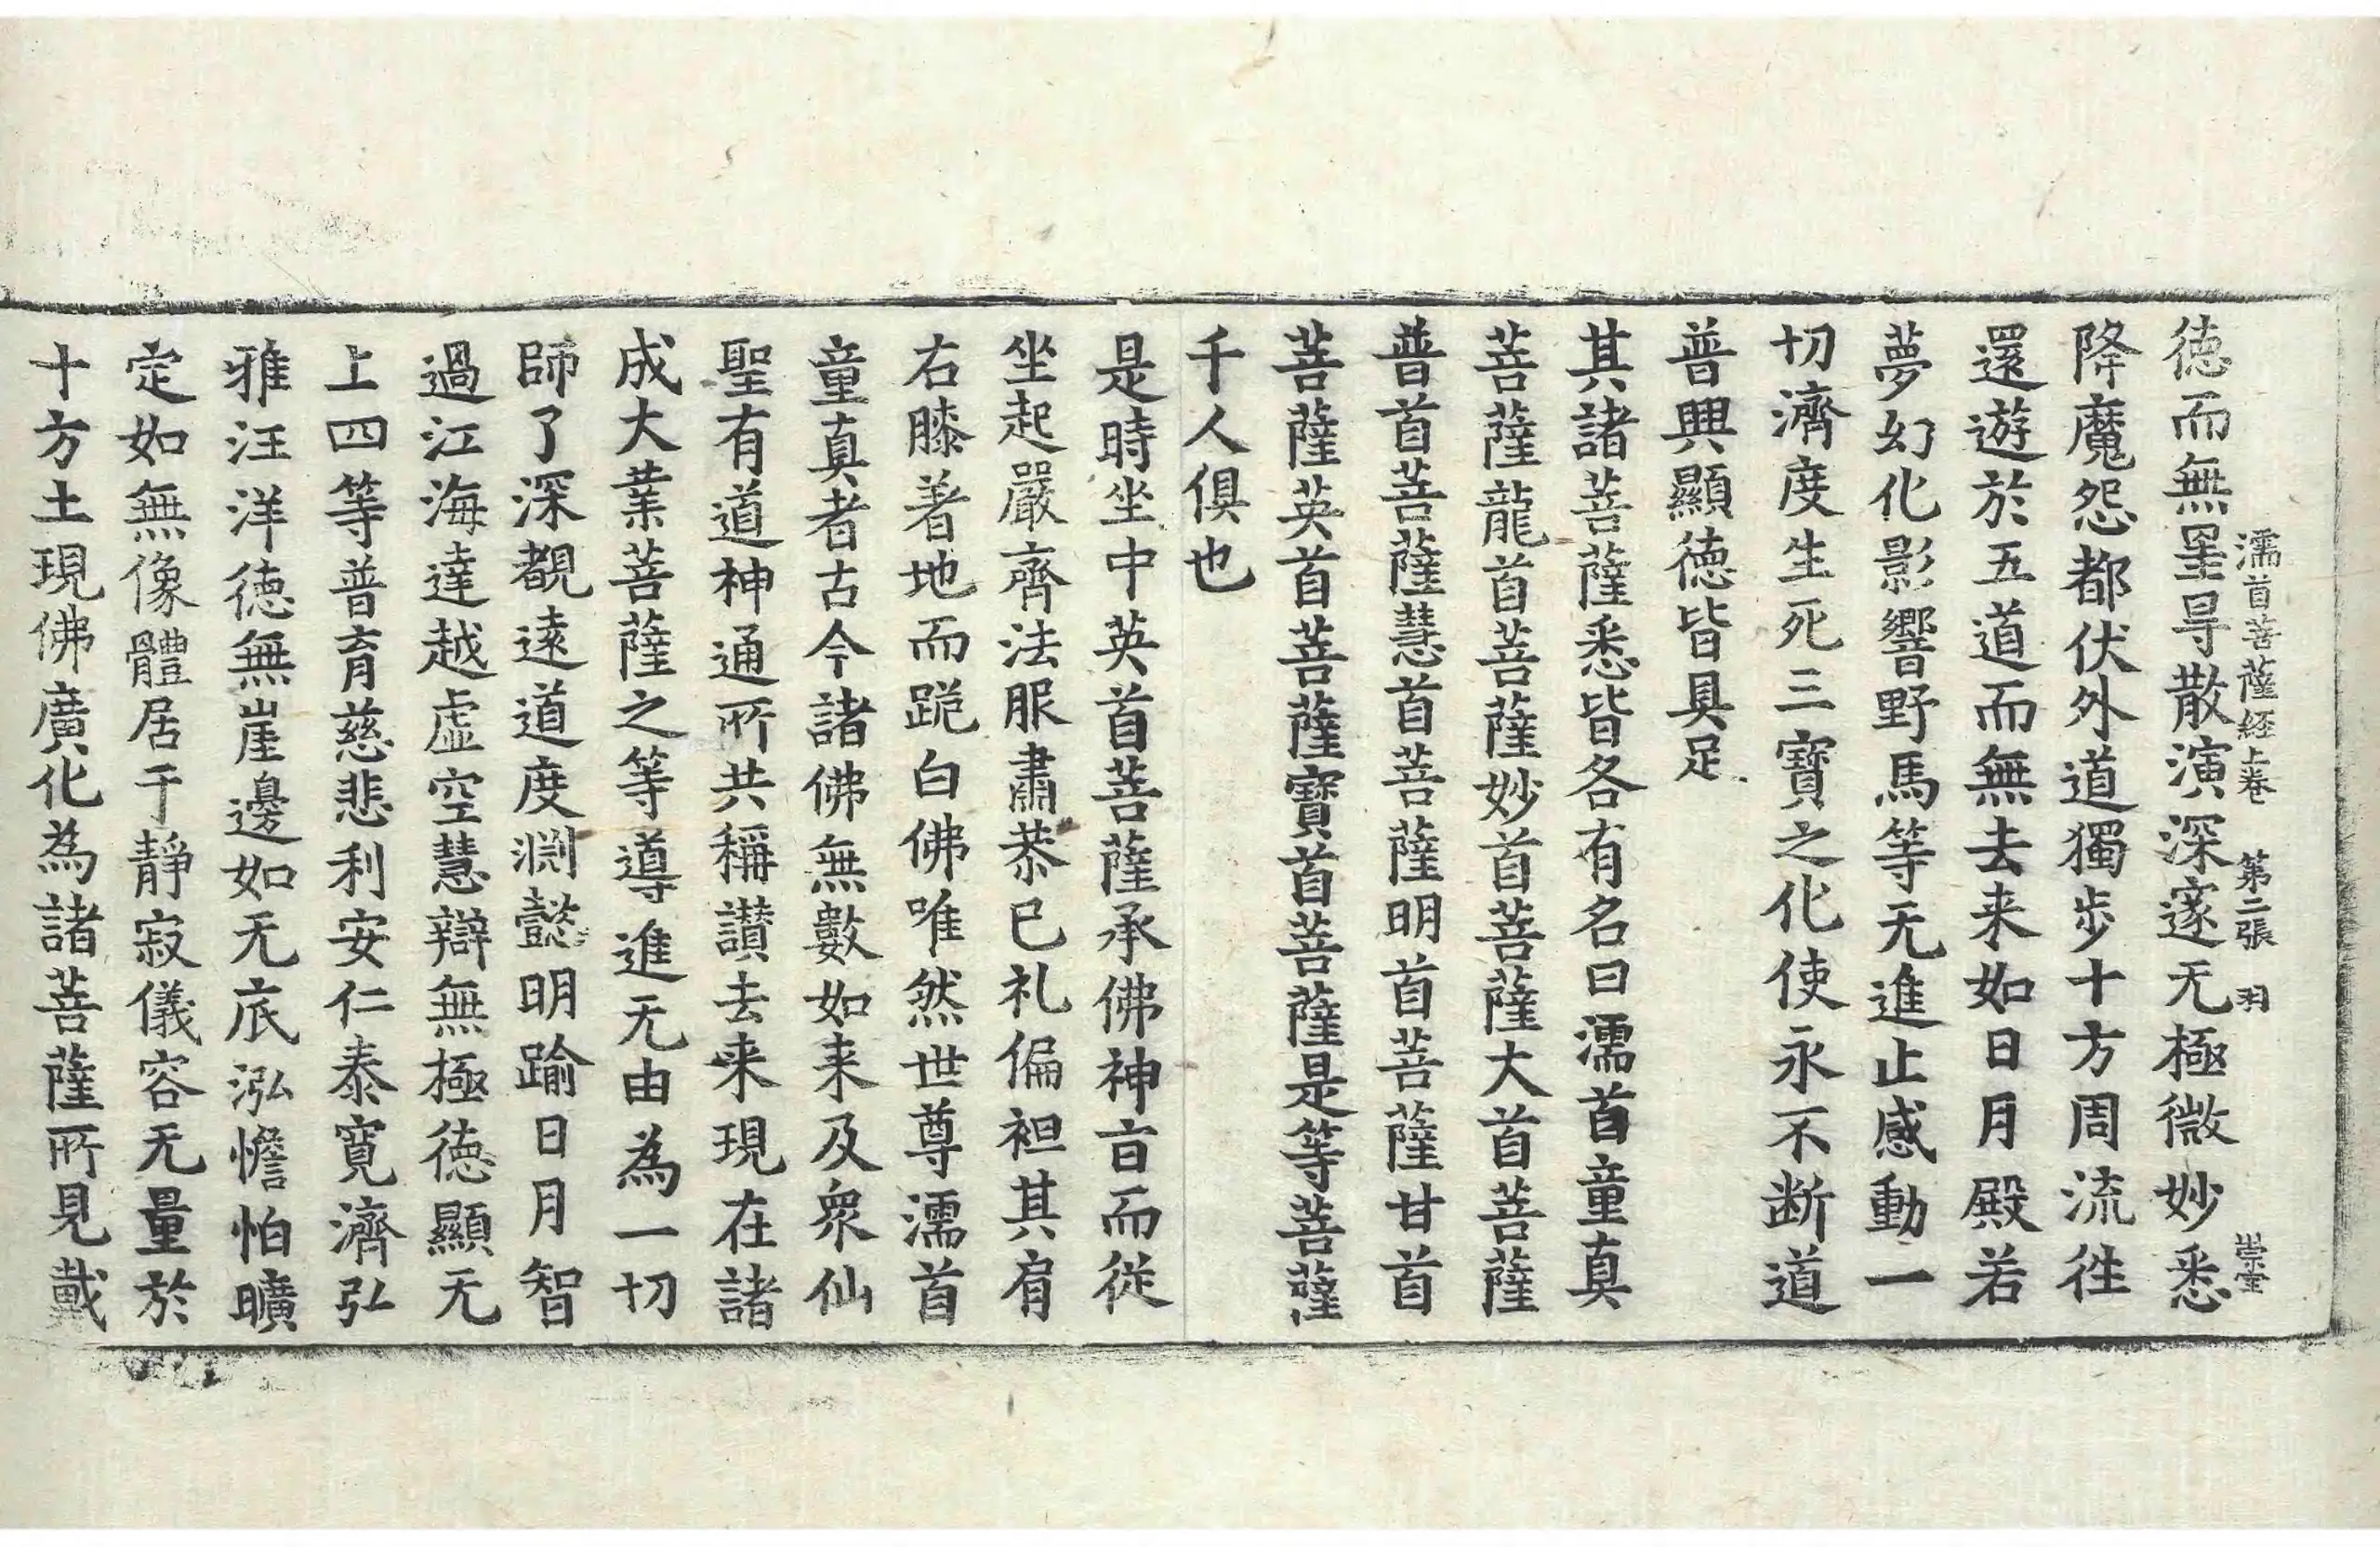 濡首菩薩経上卷 第二張 羽 崇室
徳而無罣㝵散演深邃无極微妙悉
降魔怨都伏外道獨步十方周流徃
還遊於五道而無去来如日月殿若
夢幻化影響野馬等无進止感動一
切濟度生死三寶之化使永不断道
普興顯徳皆具足
其諸菩薩悉皆各有名曰濡首童真
菩薩龍首菩薩妙首菩薩大首菩薩
普首菩薩慧首菩薩明首菩薩甘首
菩薩英首菩薩寶首菩薩是等菩薩
千人俱也
是時坐中英首菩薩承佛神㫖而従
坐起嚴齊法服肅恭已礼偏袒其肩
右膝着地而跪白佛唯然世尊濡首
童真者古今諸佛無數如来及衆仙
聖有道神通所共稱讃去来現在諸
成大業菩薩之等導進无由為一切
師了深覩遠道度淵懿明踰日月智
過江海達越虛空慧辯無極徳顯无
上四等普育慈悲利安仁泰寬濟弘
雅汪洋徳無崖邊如无底泓憺怕曠
定如無像體居于靜寂儀容无量於
十方土現佛廣化為諸菩薩所見戴